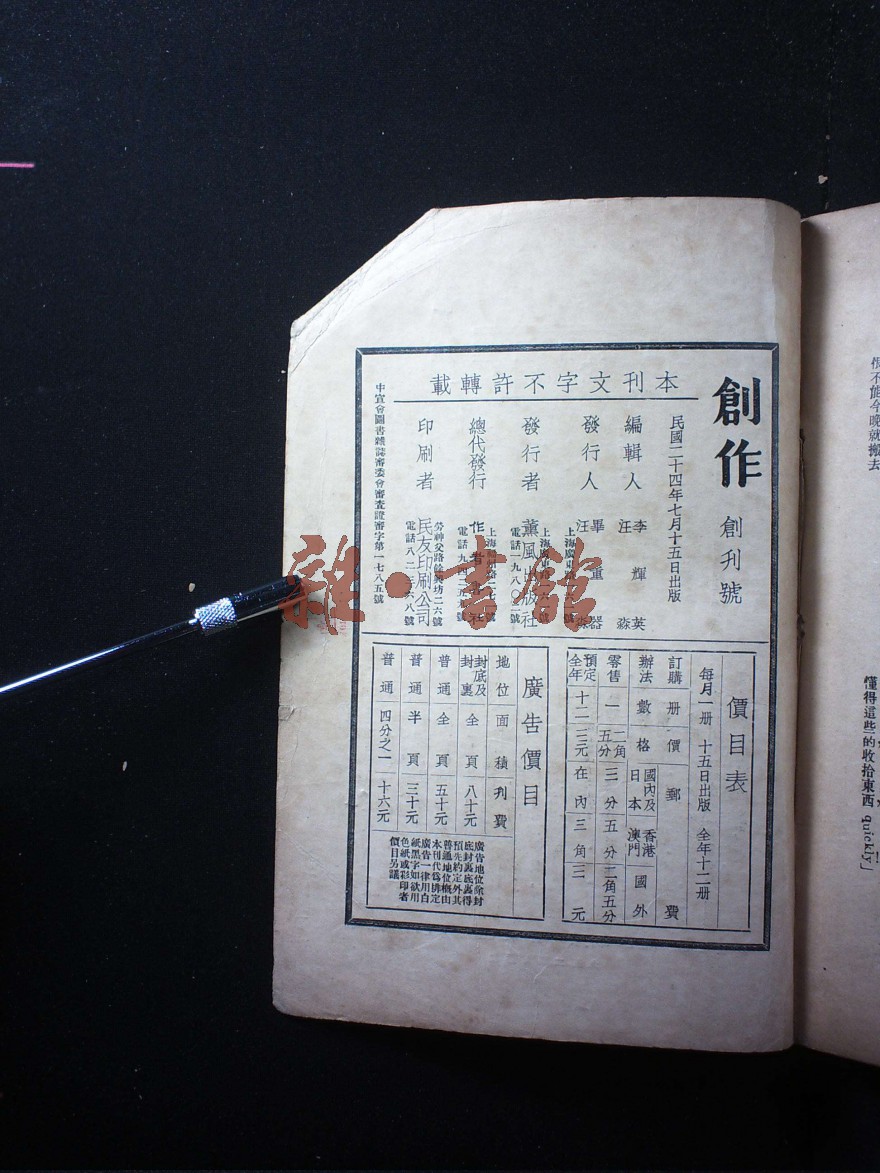 創作 創刊號
民國二十四年七月十五日出版
本刊文字不許轉載
編輯人 李輝英 汪淼
發行人 畢重器 汪淼
發行者 薰風出版社
上海廣東路
電話一九八〇二號
總代發行 作者社
電話九四
印刷者 民友印刷公司
勞神父路餘興坊二六號
電話八二三六八號
中宣會圖書雜誌審委會審查證審字第一七八五號
價目表
每月一册 十五日出版 全年十二册
訂購辦法 册數 價格 郵費
國內及日本 香港澳門 國外
零售 一 二角五分 三分 五分 二角五分
預定全年 十二 三元 在內 三角 三元
廣告價目
地位 面積 刊費
封底及封裏 全頁 八十元
普通 全頁 五十元
普通 半頁 三十元
普通 四分之一 十六元
廣告地位除封
底封裏底裏得
預先約定外其
普通地位概由
本刊代為排定
廣告一律用白
紙黑字如欲用
色紙或彩印者
價目另議
不能今晚就搬去
懂得這些的收拾東西
quickly」
雜·書館